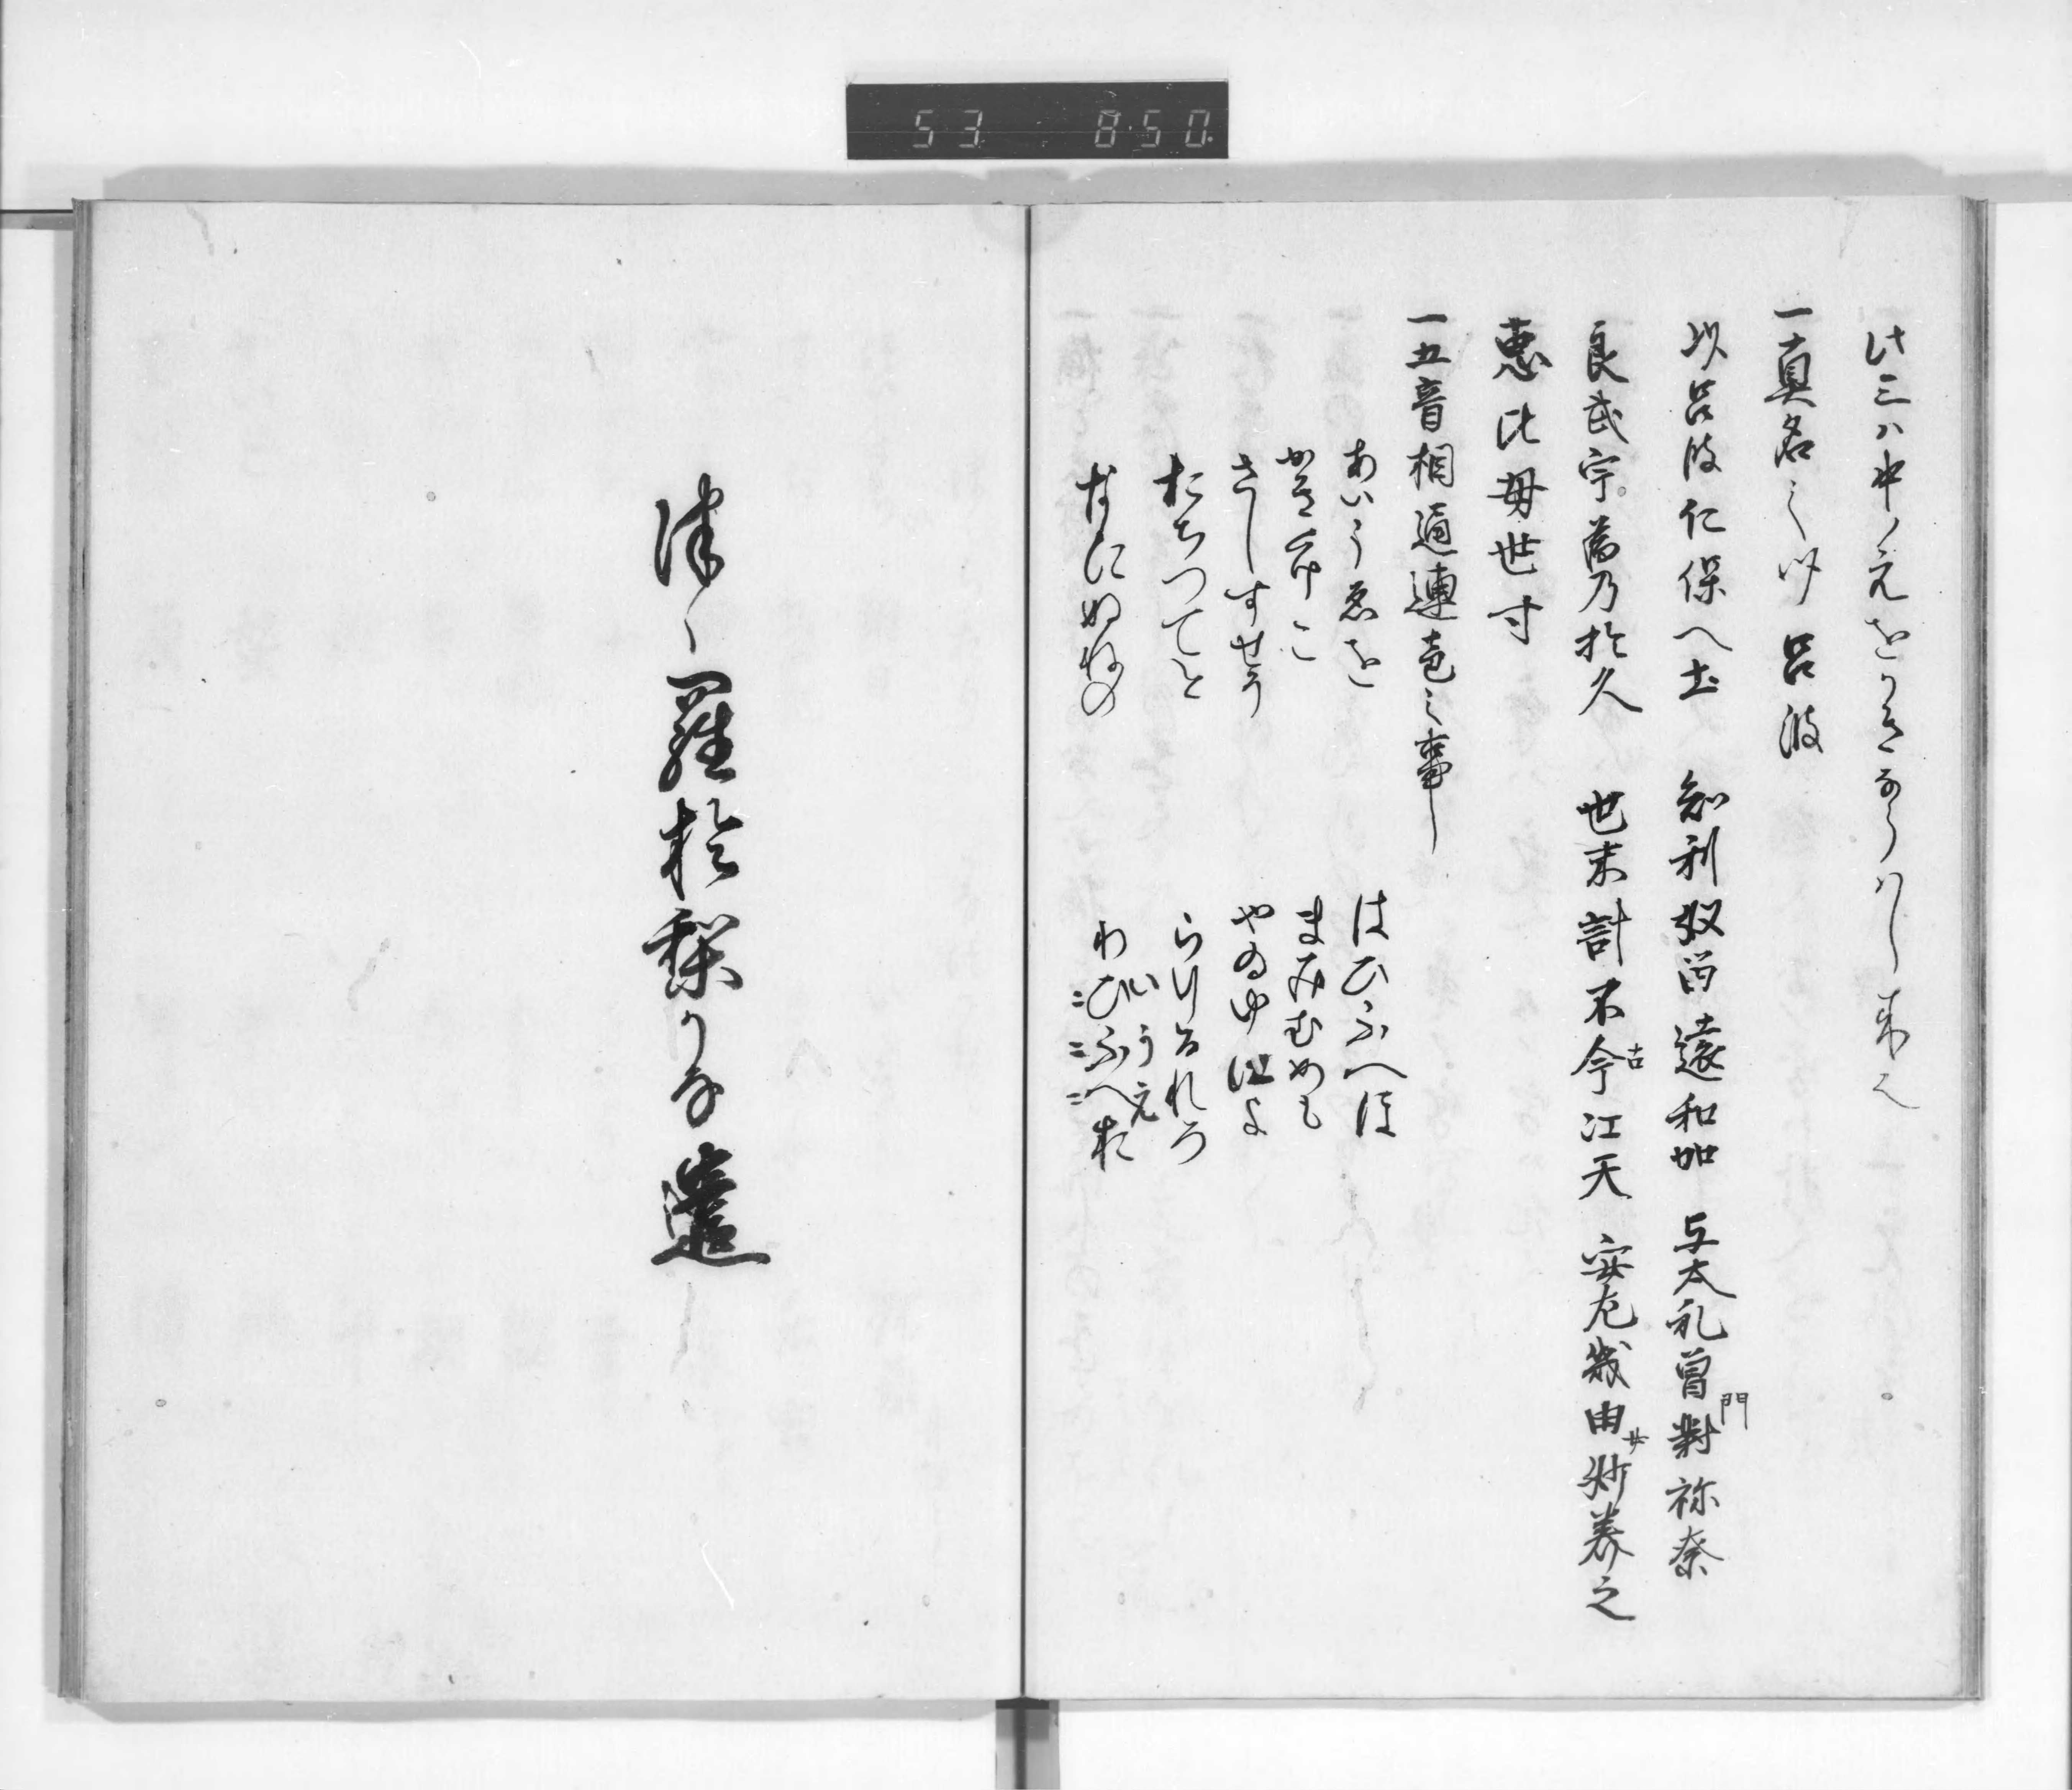 53 8:50
此三ハ中ノえをかきならハし来之
一真名之以呂波
以呂波仁保へ土 知利奴留遠和加 与太礼曽對祢奈
門
良武宇為乃於久 也末計不今江天 安左幾由妙美之
古
サ
恵比毋世寸
一五音相通連声之事
あいうゑを はひふへほ
かきくけこ まみむめも
さしすせそ やゐゆ江よ
たちつてと らりるれろ
いうえ
なにぬねの わひふへお
津ゝ羅於梨かな遣